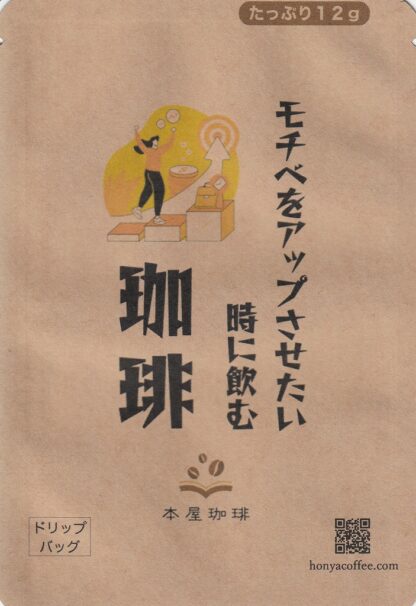 たっぷり12g
モチベをアップさせたい
時に飲む
珈琲
本屋珈琲
ドリップ
バッグ
honyacoffee.com